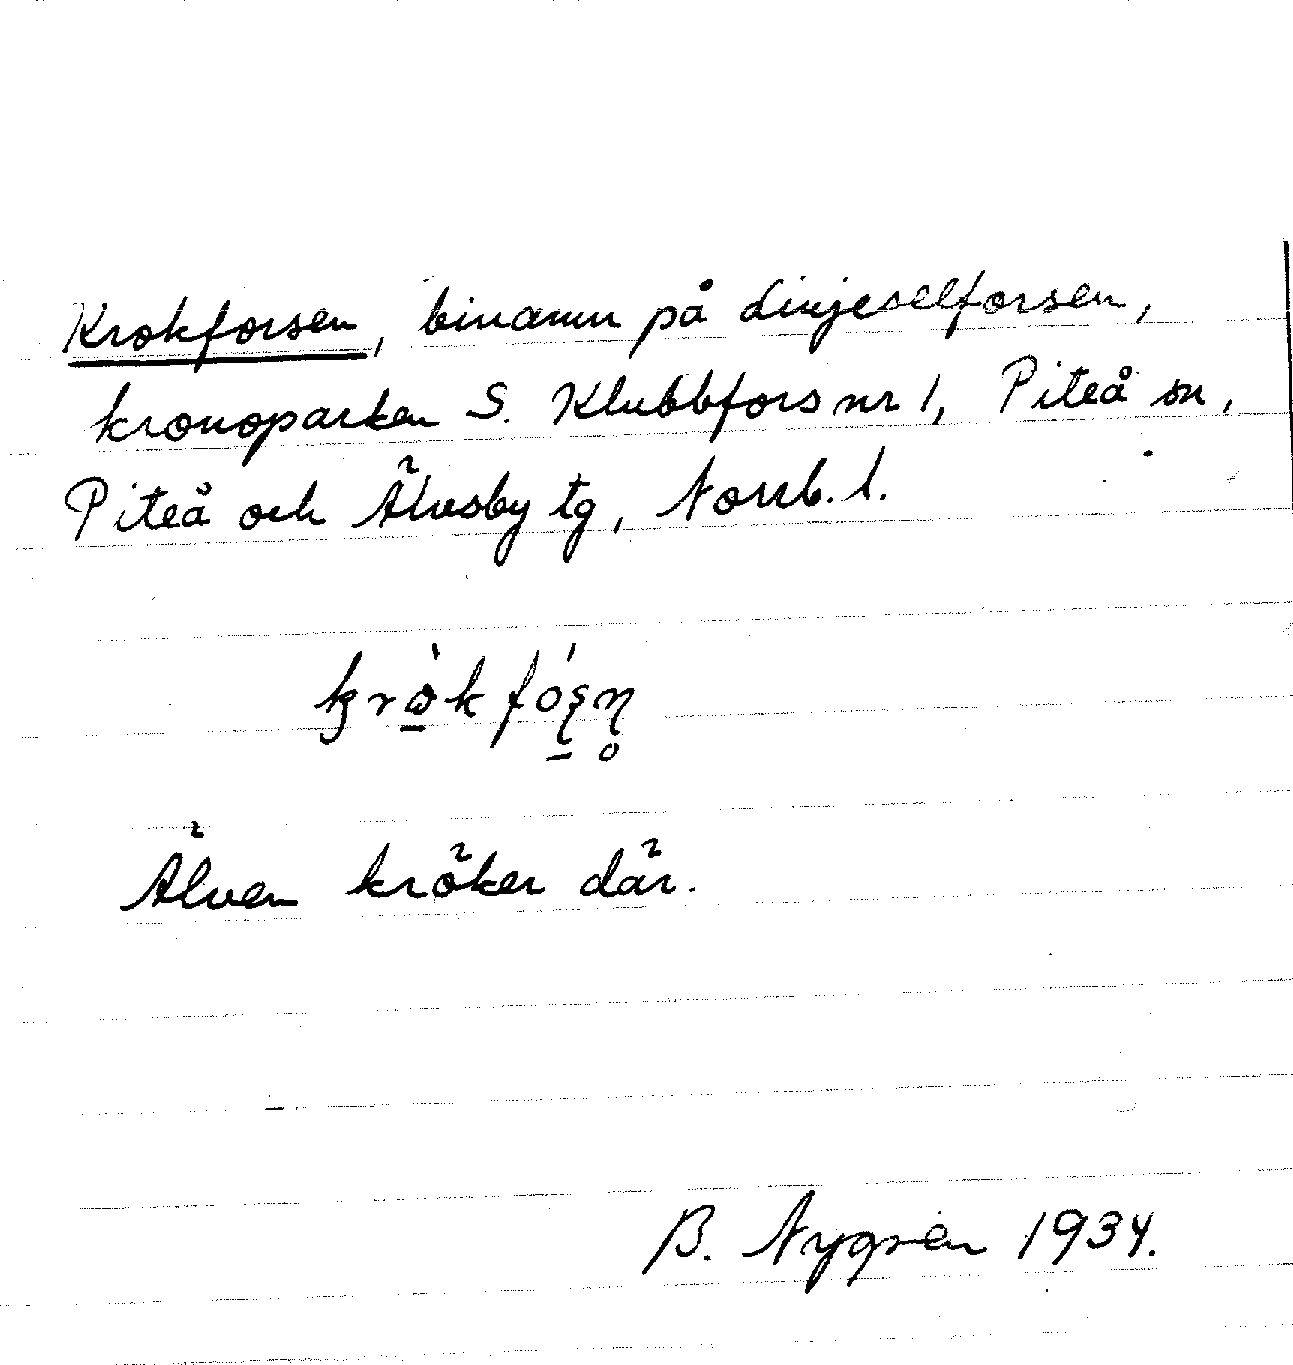 Krokforsen, binamn på Linjeselforsen,
kronoparken S. Klubbfors nr 1, Piteå sn,
Piteå och Älvsby tg, Norrb. l.
Älven kröker där.
B. Nygren 1934.